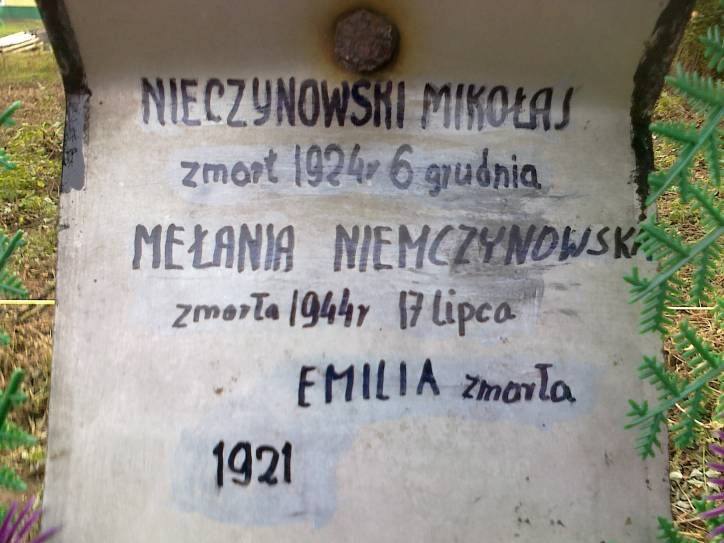 NIECZYNOWSKI MIKOŁAJ
zmarł 1924r 6 grudnia
MEŁANIA NIEMCZYNOWSKA
zmarła 1944r 17 lipca
EMILIA zmarła
1921